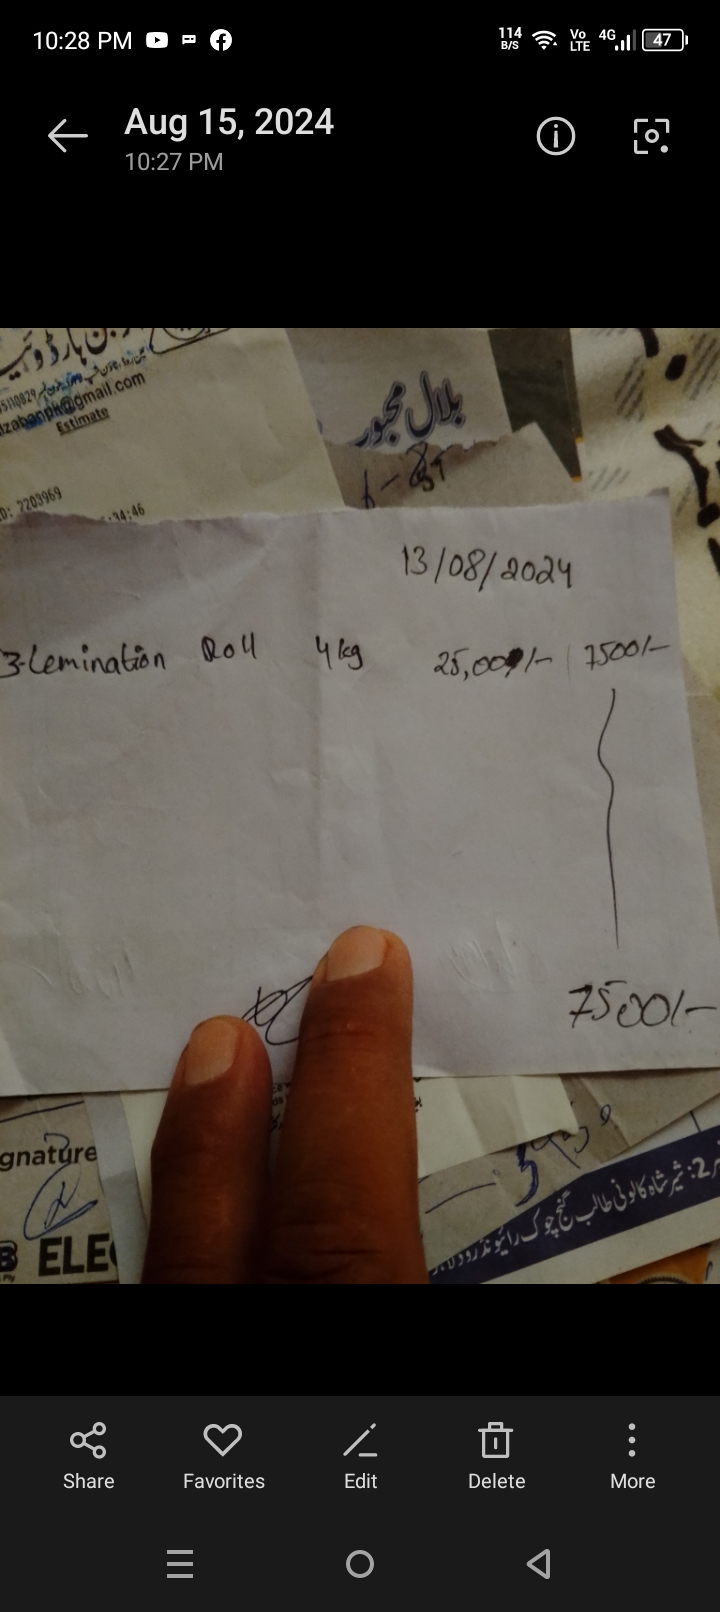 10:28 PM
114 B/S Vo LTE 4G 47
Aug 15, 2024
10:27 PM
@gmail.com
Estimate
بلال مجبور
D: 7203969
:34:46
13/08/2024
3-Lemination Roll 4kg 25,000/- 7500/-
7500/-
gnature
ELE
2: شیر شاہ کالونی طالب گنج چوک رائیونڈ روڈ لا
Share Favorites Edit Delete More